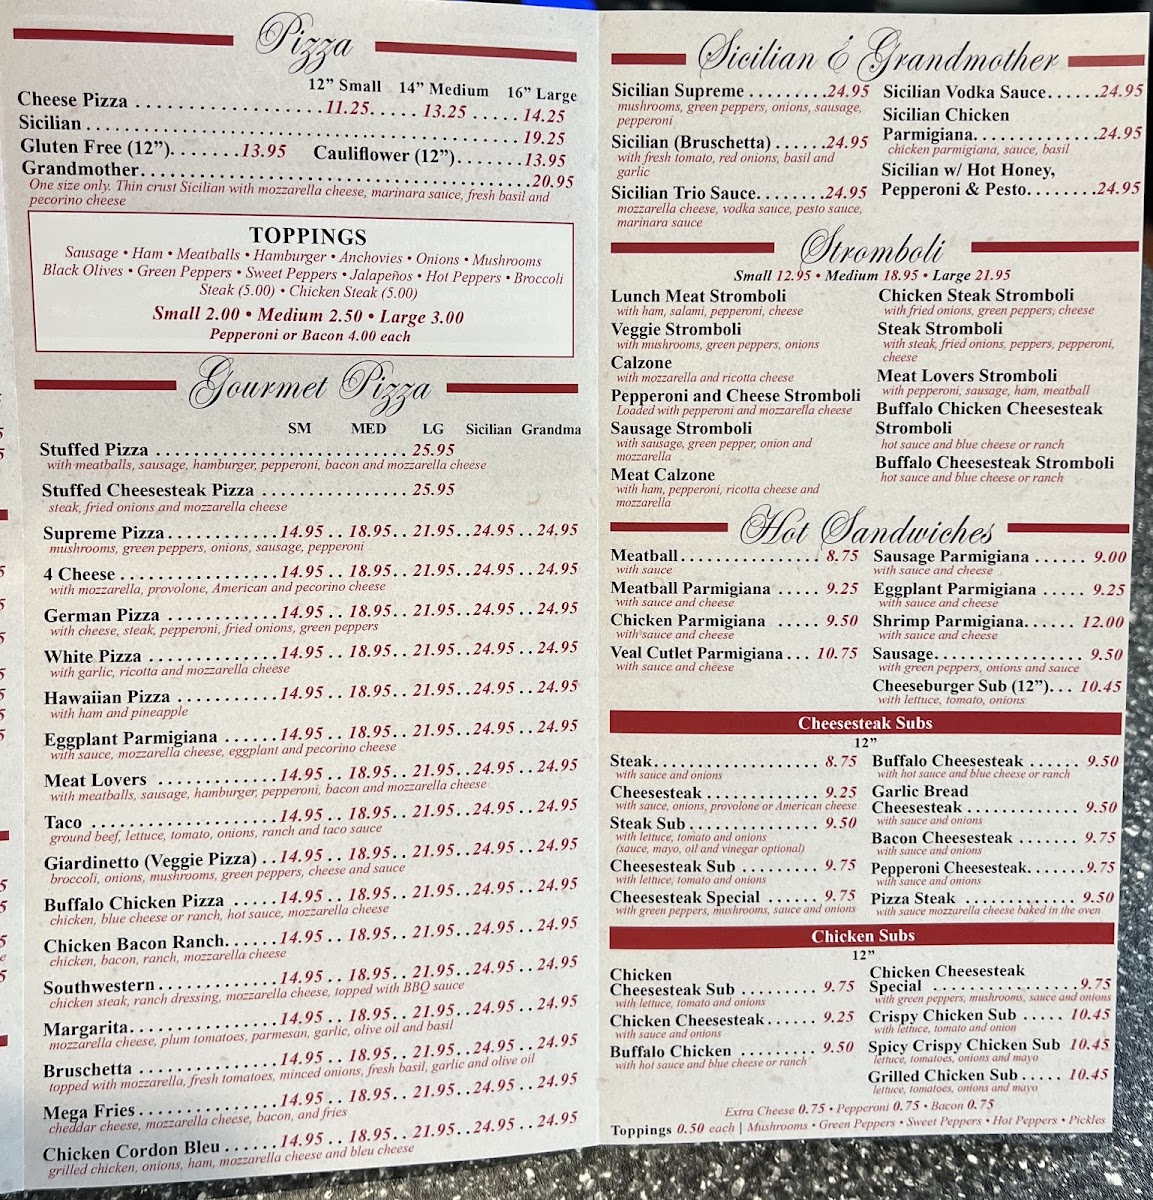 Pizza
12” Small 14” Medium 16” Large
Cheese Pizza . . . . . . . . . . . . . . . . . . 11.25. . . . . 13.25 . . . . . 14.25
Sicilian . . . . . . . . . . . . . . . . . . . . . . . . . . . . . . . . . . . . . . . 19.25
Gluten Free (12”). . . . . . . 13.95 Cauliflower (12”). . . . . . . 13.95
Grandmother. . . . . . . . . . . . . . . . . . . . . . . . . . . . . . . . . . . 20.95
One size only. Thin crust Sicilian with mozzarella cheese, marinara sauce, fresh basil and
pecorino cheese
TOPPINGS
Sausage • Ham • Meatballs • Hamburger • Anchovies • Onions • Mushrooms
Black Olives • Green Peppers • Sweet Peppers • Jalapeños • Hot Peppers • Broccoli
Steak (5.00) • Chicken Steak (5.00)
Small 2.00 • Medium 2.50 • Large 3.00
Pepperoni or Bacon 4.00 each
Gourmet Pizza
SM MED LG Sicilian Grandma
Stuffed Pizza . . . . . . . . . . . . . . . . . . . . . . . . . . . . 25.95
with meatballs, sausage, hamburger, pepperoni, bacon and mozzarella cheese
Stuffed Cheesesteak Pizza . . . . . . . . . . . . . . . . 25.95
steak, fried onions and mozzarella cheese
Supreme Pizza . . . . . . . . . . . . 14.95 . . 18.95. . 21.95. . 24.95 . . 24.95
mushrooms, green peppers, onions, sausage, pepperoni
4 Cheese . . . . . . . . . . . . . . . . . 14.95 . . 18.95. . 21.95. . 24.95 . . 24.95
with mozzarella, provolone, American and pecorino cheese
German Pizza . . . . . . . . . . . . 14.95 . . 18.95. . 21.95. . 24.95 . . 24.95
with cheese, steak, pepperoni, fried onions, green peppers
White Pizza . . . . . . . . . . . . . . 14.95 . . 18.95. . 21.95. . 24.95 . . 24.95
with garlic, ricotta and mozzarella cheese
Hawaiian Pizza . . . . . . . . . . . 14.95 . . 18.95. . 21.95. . 24.95 . . 24.95
with ham and pineapple
Eggplant Parmigiana . . . . . . 14.95 . . 18.95. . 21.95. . 24.95 . . 24.95
with sauce, mozzarella cheese, eggplant and pecorino cheese
Meat Lovers . . . . . . . . . . . . . 14.95 . . 18.95. . 21.95. . 24.95 . . 24.95
with meatballs, sausage, hamburger, pepperoni, bacon and mozzarella cheese
Taco . . . . . . . . . . . . . . . . . . . . 14.95 . . 18.95. . 21.95. . 24.95 . . 24.95
ground beef, lettuce, tomato, onions, ranch and taco sauce
Giardinetto (Veggie Pizza) . . 14.95 . . 18.95. . 21.95. . 24.95 . . 24.95
broccoli, onions, mushrooms, green peppers, cheese and sauce
Buffalo Chicken Pizza . . . . . 14.95 . . 18.95. . 21.95. . 24.95 . . 24.95
chicken, blue cheese or ranch, hot sauce, mozzarella cheese
Chicken Bacon Ranch. . . . . . 14.95 . . 18.95. . 21.95. . 24.95 . . 24.95
chicken, bacon, ranch, mozzarella cheese
Southwestern . . . . . . . . . . . . . 14.95 . . 18.95. . 21.95. . 24.95 . . 24.95
chicken steak, ranch dressing, mozzarella cheese, topped with BBQ sauce
Margarita. . . . . . . . . . . . . . . . 14.95 . . 18.95. . 21.95. . 24.95 . . 24.95
mozzarella cheese, plum tomatoes, parmesan, garlic, olive oil and basil
Bruschetta . . . . . . . . . . . . . . . 14.95 . . 18.95. . 21.95. . 24.95 . . 24.95
topped with mozzarella, fresh tomatoes, minced onions, fresh basil, garlic and olive oil
Mega Fries . . . . . . . . . . . . . . . 14.95 . . 18.95. . 21.95. . 24.95 . . 24.95
cheddar cheese, mozzarella cheese, bacon, and fries
Chicken Cordon Bleu . . . . . . 14.95 . . 18.95. . 21.95. . 24.95 . . 24.95
grilled chicken, onions, ham, mozzarella cheese and bleu cheese
Sicilian & Grandmother
Sicilian Supreme . . . . . . . . . 24.95
mushrooms, green peppers, onions, sausage,
pepperoni
Sicilian (Bruschetta) . . . . . . 24.95
with fresh tomato, red onions, basil and
garlic
Sicilian Trio Sauce. . . . . . . . 24.95
mozzarella cheese, vodka sauce, pesto sauce,
marinara sauce
Sicilian Vodka Sauce. . . . . . 24.95
Sicilian Chicken
Parmigiana. . . . . . . . . . . . . . 24.95
chicken parmigiana, sauce, basil
Sicilian w/ Hot Honey,
Pepperoni & Pesto. . . . . . . . 24.95
Stromboli
Small 12.95 • Medium 18.95 • Large 21.95
Lunch Meat Stromboli
with ham, salami, pepperoni, cheese
Veggie Stromboli
with mushrooms, green peppers, onions
Calzone
with mozzarella and ricotta cheese
Pepperoni and Cheese Stromboli
Loaded with pepperoni and mozzarella cheese
Sausage Stromboli
with sausage, green pepper, onion and
mozzarella
Meat Calzone
with ham, pepperoni, ricotta cheese and
mozzarella
Chicken Steak Stromboli
with fried onions, green peppers, cheese
Steak Stromboli
with steak, fried onions, peppers, pepperoni,
cheese
Meat Lovers Stromboli
with pepperoni, sausage, ham, meatball
Buffalo Chicken Cheesesteak
Stromboli
hot sauce and blue cheese or ranch
Buffalo Cheesesteak Stromboli
hot sauce and blue cheese or ranch
Hot Sandwiches
Meatball . . . . . . . . . . . . . . . . . 8.75
with sauce
Meatball Parmigiana . . . . . 9.25
with sauce and cheese
Chicken Parmigiana . . . . . 9.50
with sauce and cheese
Veal Cutlet Parmigiana . . . 10.75
with sauce and cheese
Sausage Parmigiana . . . . . 9.00
with sauce and cheese
Eggplant Parmigiana . . . . . 9.25
with sauce and cheese
Shrimp Parmigiana. . . . . . 12.00
with sauce and cheese
Sausage. . . . . . . . . . . . . . . . . 9.50
with green peppers, onions and sauce
Cheeseburger Sub (12”). . . 10.45
with lettuce, tomato, onions
Cheesesteak Subs
12”
Steak. . . . . . . . . . . . . . . . . . . . 8.75
with sauce and onions
Cheesesteak . . . . . . . . . . . . . . 9.25
with sauce, onions, provolone or American cheese
Steak Sub . . . . . . . . . . . . . . . . 9.50
with lettuce, tomato and onions
(sauce, mayo, oil and vinegar optional)
Cheesesteak Sub . . . . . . . . . . 9.75
with lettuce, tomato and onions
Cheesesteak Special . . . . . . . 9.75
with green peppers, mushrooms, sauce and onions
Buffalo Cheesesteak . . . . . . 9.50
with hot sauce and blue cheese or ranch
Garlic Bread
Cheesesteak . . . . . . . . . . . . . 9.50
with sauce and onions
Bacon Cheesesteak . . . . . . . 9.75
with sauce and onions
Pepperoni Cheesesteak. . . . . . . 9.75
with sauce and onions
Pizza Steak . . . . . . . . . . . . . 9.50
with sauce mozzarella cheese baked in the oven
Chicken Subs
12”
Chicken
Cheesesteak Sub . . . . . . . . . 9.75
with lettuce, tomato and onions
Chicken Cheesesteak . . . . . . 9.25
with sauce and onions
Buffalo Chicken . . . . . . . . . . 9.50
with hot sauce and blue cheese or ranch
Chicken Cheesesteak
Special . . . . . . . . . . . . . . . . . 9.75
with green peppers, mushrooms, sauce and onions
Crispy Chicken Sub . . . . . 10.45
with lettuce, tomato and onion
Spicy Crispy Chicken Sub 10.45
lettuce, tomatoes, onions and mayo
Grilled Chicken Sub . . . . . 10.45
lettuce, tomatoes, onions and mayo
Extra Cheese 0.75 • Pepperoni 0.75 • Bacon 0.75
Toppings 0.50 each | Mushrooms • Green Peppers • Sweet Peppers • Hot Peppers • Pickles